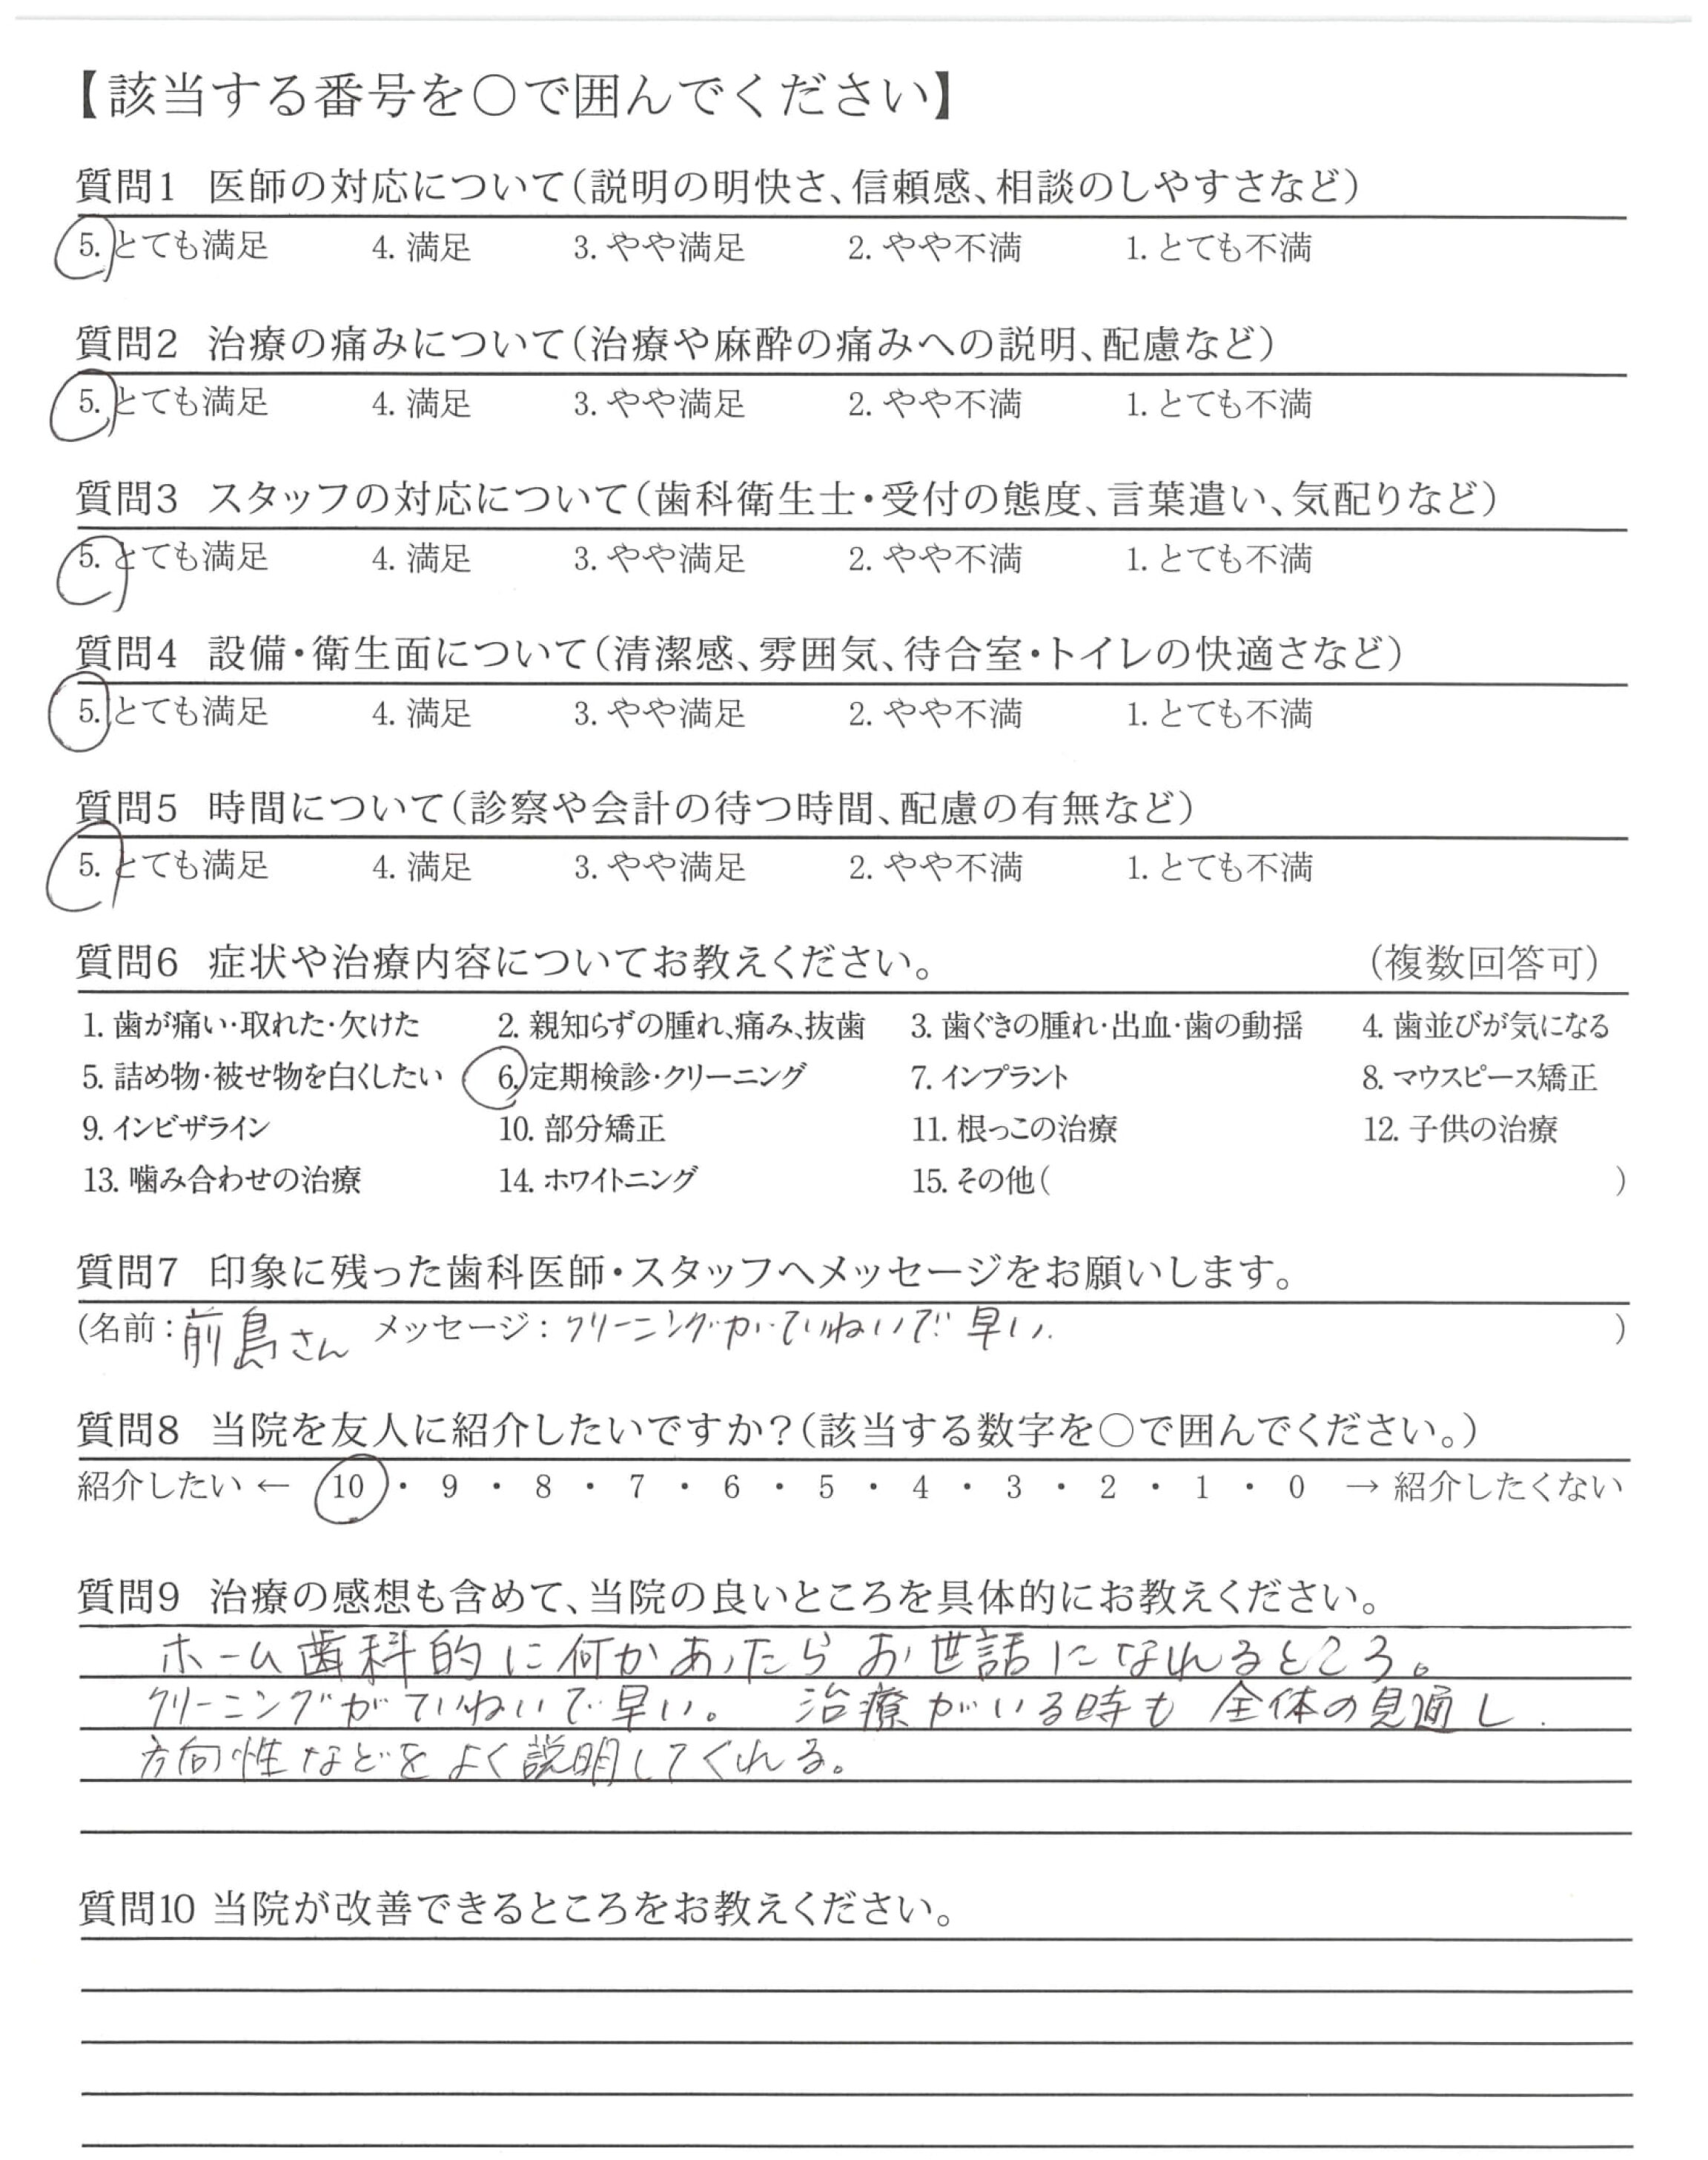 【該当する番号を○で囲んでください】
質問1 医師の対応について(説明の明快さ、信頼感、相談のしやすさなど)
5. とても満足 4. 満足 3. やや満足 2. やや不満 1. とても不満
質問2 治療の痛みについて(治療や麻酔の痛みへの説明、配慮など)
5. とても満足 4. 満足 3. やや満足 2. やや不満 1. とても不満
質問3 スタッフの対応について(歯科衛生士・受付の態度、言葉遣い、気配りなど)
5. とても満足 4. 満足 3. やや満足 2. やや不満 1. とても不満
質問4 設備・衛生面について(清潔感、雰囲気、待合室・トイレの快適さなど)
5. とても満足 4. 満足 3. やや満足 2. やや不満 1. とても不満
質問5 時間について(診察や会計の待つ時間、配慮の有無など)
5. とても満足 4. 満足 3. やや満足 2. やや不満 1. とても不満
質問6 症状や治療内容についてお教えください。 (複数回答可)
1. 歯が痛い・取れた・欠けた 2. 親知らずの腫れ、痛み、抜歯 3. 歯ぐきの腫れ・出血・歯の動揺 4. 歯並びが気になる
5. 詰め物・被せ物を白くしたい 6. 定期検診・クリーニング 7. インプラント 8. マウスピース矯正
9. インビザライン 10. 部分矯正 11. 根っこの治療 12. 子供の治療
13. 噛み合わせの治療 14. ホワイトニング 15. その他( )
質問7 印象に残った歯科医師・スタッフへメッセージをお願いします。
(名前:前島さん メッセージ:クリーニングがていねいで早い. )
質問8 当院を友人に紹介したいですか?(該当する数字を○で囲んでください。)
紹介したい ← 10 ・ 9 ・ 8 ・ 7 ・ 6 ・ 5 ・ 4 ・ 3 ・ 2 ・ 1 ・ 0 → 紹介したくない
質問9 治療の感想も含めて、当院の良いところを具体的にお教えください。
ホーム歯科的に何かあったらお世話になれるところ。
クリーニングがていねいで早い。 治療がいる時も全体の見通し.
方向性などをよく説明してくれる。
質問10 当院が改善できるところをお教えください。